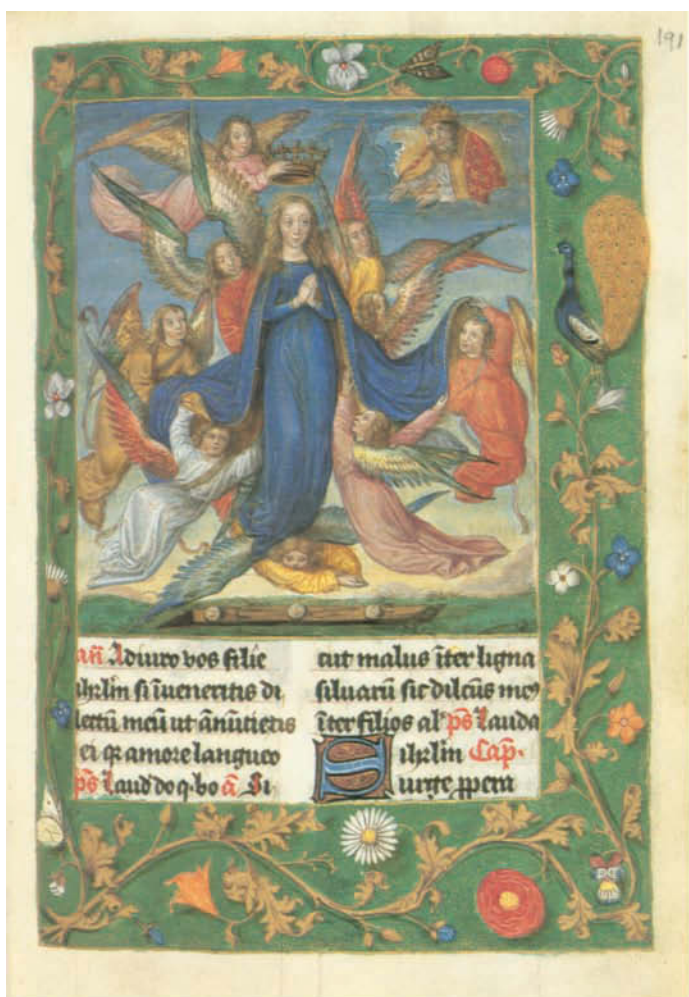 191
an̄ Adiuro vos filie
ihrl̄m si īueneritis di
lectū meū ut ānūtietis
ei qꝛ amore langueo
p̄s Laud do q. bo ā Si
cut malus īter ligna
siluarū sic dilc̄us meꝰ
īter filios al' p̄s Lauda
ihrl̄m Cap̄.
Surge ꝓpera